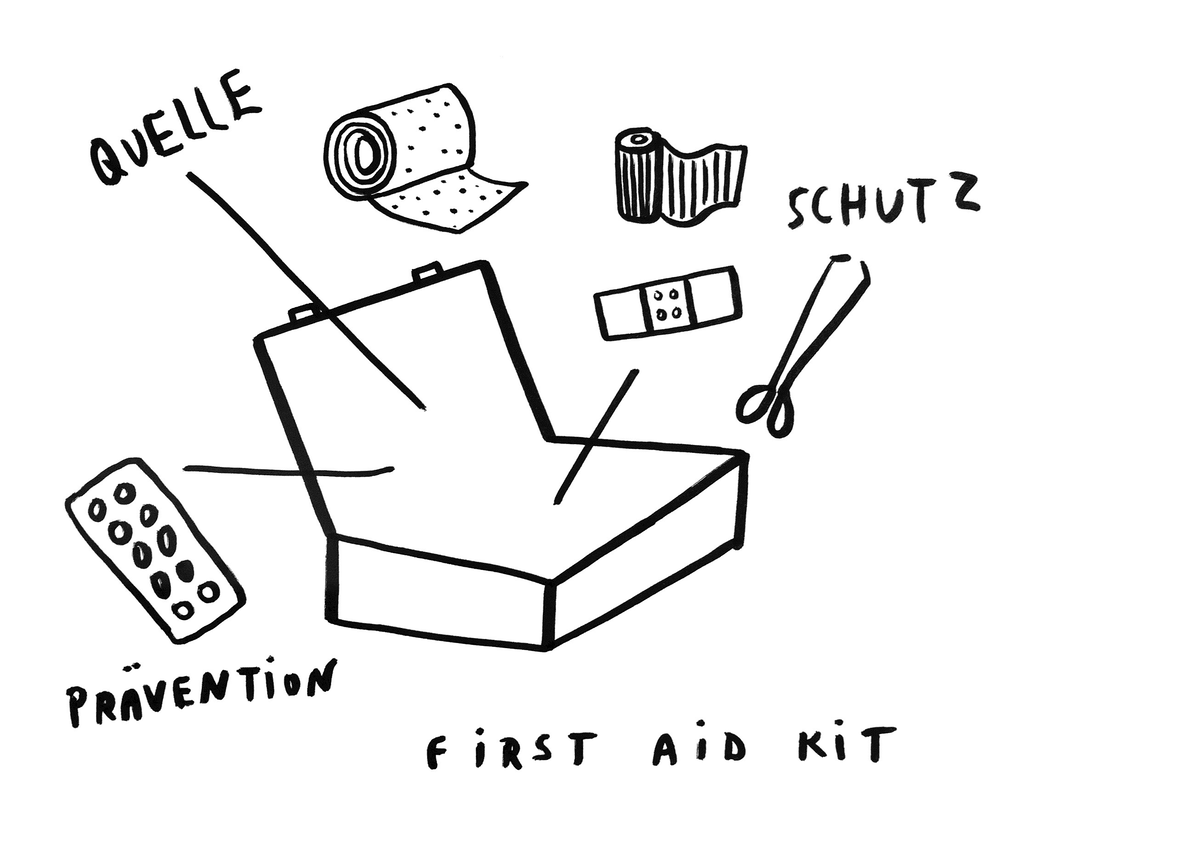 QUELLE
SCHUTZ
PRÄVENTION
FIRST AID KIT